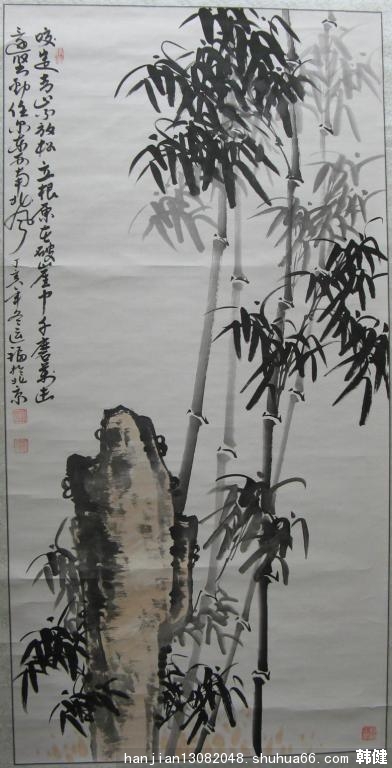 咬定青山不放松立根原在破崖中千磨萬击
还坚劲任尔东西南北风丁亥年冬运福於北京
hanjian13082048.shuhua66.com 韩健